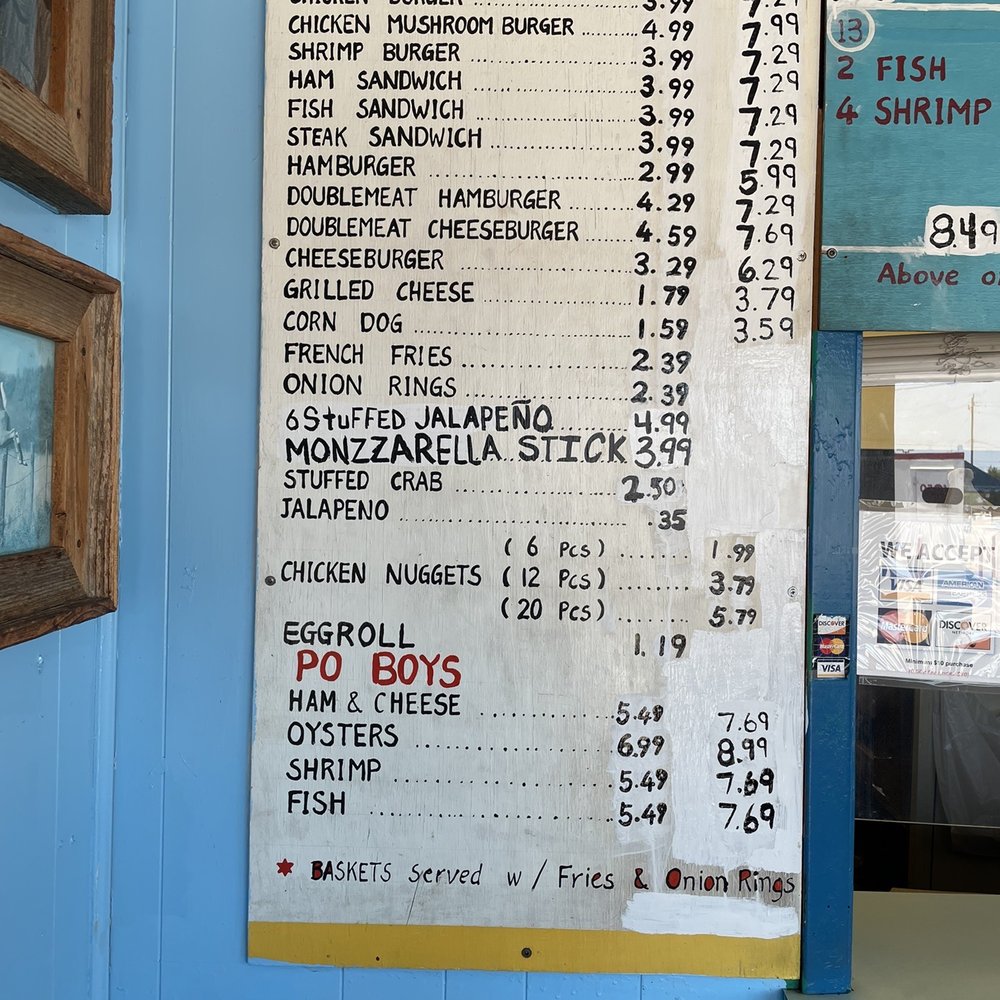 CHICKEN BURGER 3.99 7.29
CHICKEN MUSHROOM BURGER 4.99 7.99
SHRIMP BURGER 3.99 7.29
HAM SANDWICH 3.99 7.29
FISH SANDWICH 3.99 7.29
STEAK SANDWICH 3.99 7.29
HAMBURGER 2.99 5.99
DOUBLEMEAT HAMBURGER 4.29 7.29
DOUBLEMEAT CHEESEBURGER 4.59 7.69
CHEESEBURGER 3.29 6.29
GRILLED CHEESE 1.79 3.79
CORN DOG 1.59 3.59
FRENCH FRIES 2.39
ONION RINGS 2.39
6 StuFFED JALAPEÑO 4.99
MONZZARELLA STICK 3.99
STUFFED CRAB 2.50
JALAPENO .35
(6 Pcs) 1.99
CHICKEN NUGGETS (12 Pcs) 3.79
(20 Pcs) 5.79
EGGROLL 1.19
PO BOYS
HAM & CHEESE 5.49 7.69
OYSTERS 6.99 8.99
SHRIMP 5.49 7.69
FISH 5.49 7.69
* BASKETS served w/ Fries & Onion Rings
13
2 FISH
4 SHRIMP
8.49
Above
WE ACCEPT
VISA AMERICAN
MasterCard DISCOVER
Minimum $10 purchase
DISCOVER
MasterCard
VISA